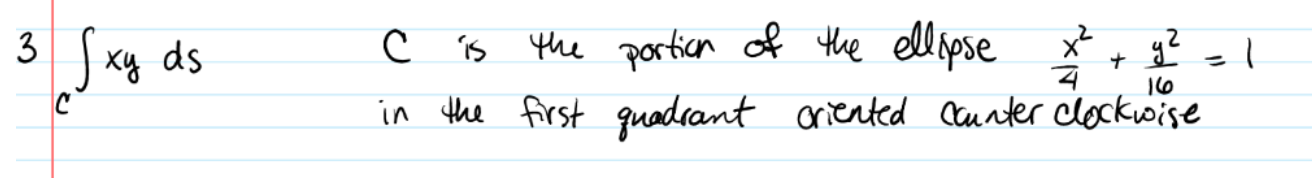 3 ∫_C xy ds C is the portion of the ellipse x²/4 + y²/16 = 1
in the first quadrant oriented counter clockwise